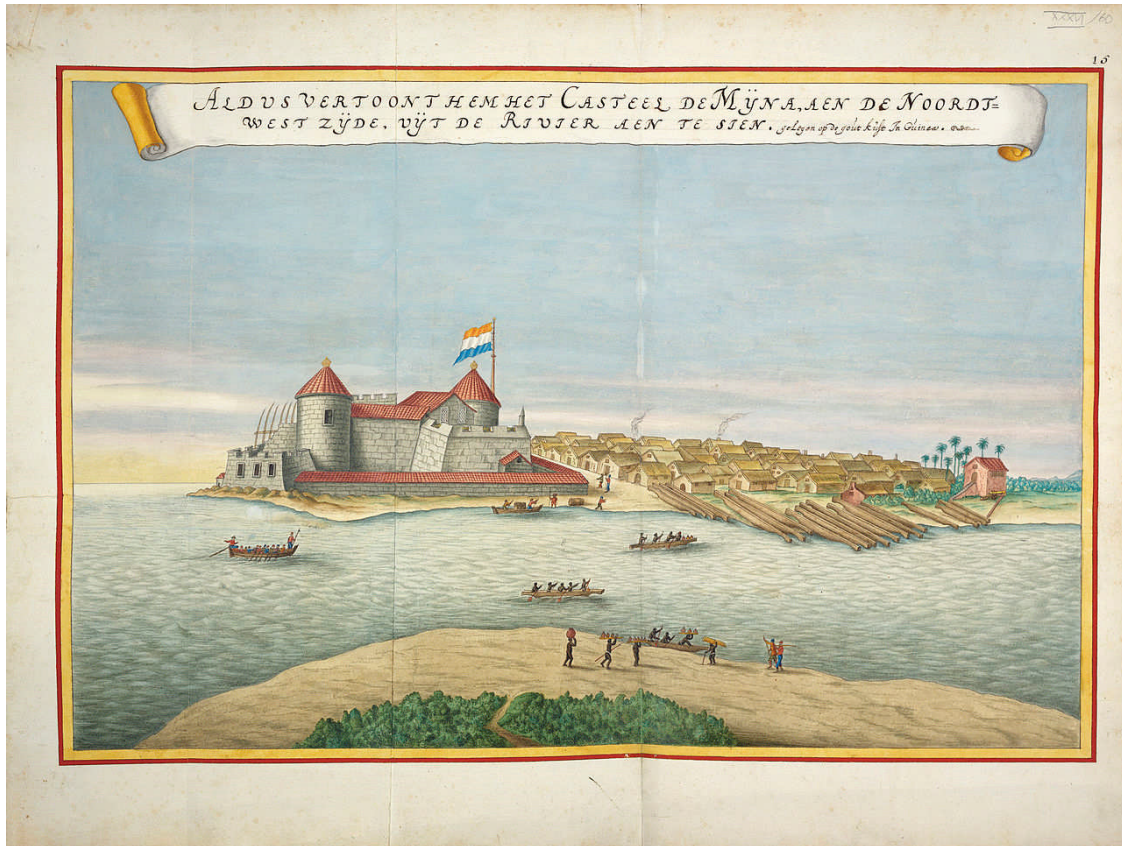 XXXVI /60
16
ALDVS VERTOONT HEM HET CASTEEL DE MŸNA, AEN DE NOORDT=
WEST ZŸDE, VŸT DE RIVIER AEN TE SIEN. gelegen op de gout kust In Guinea.